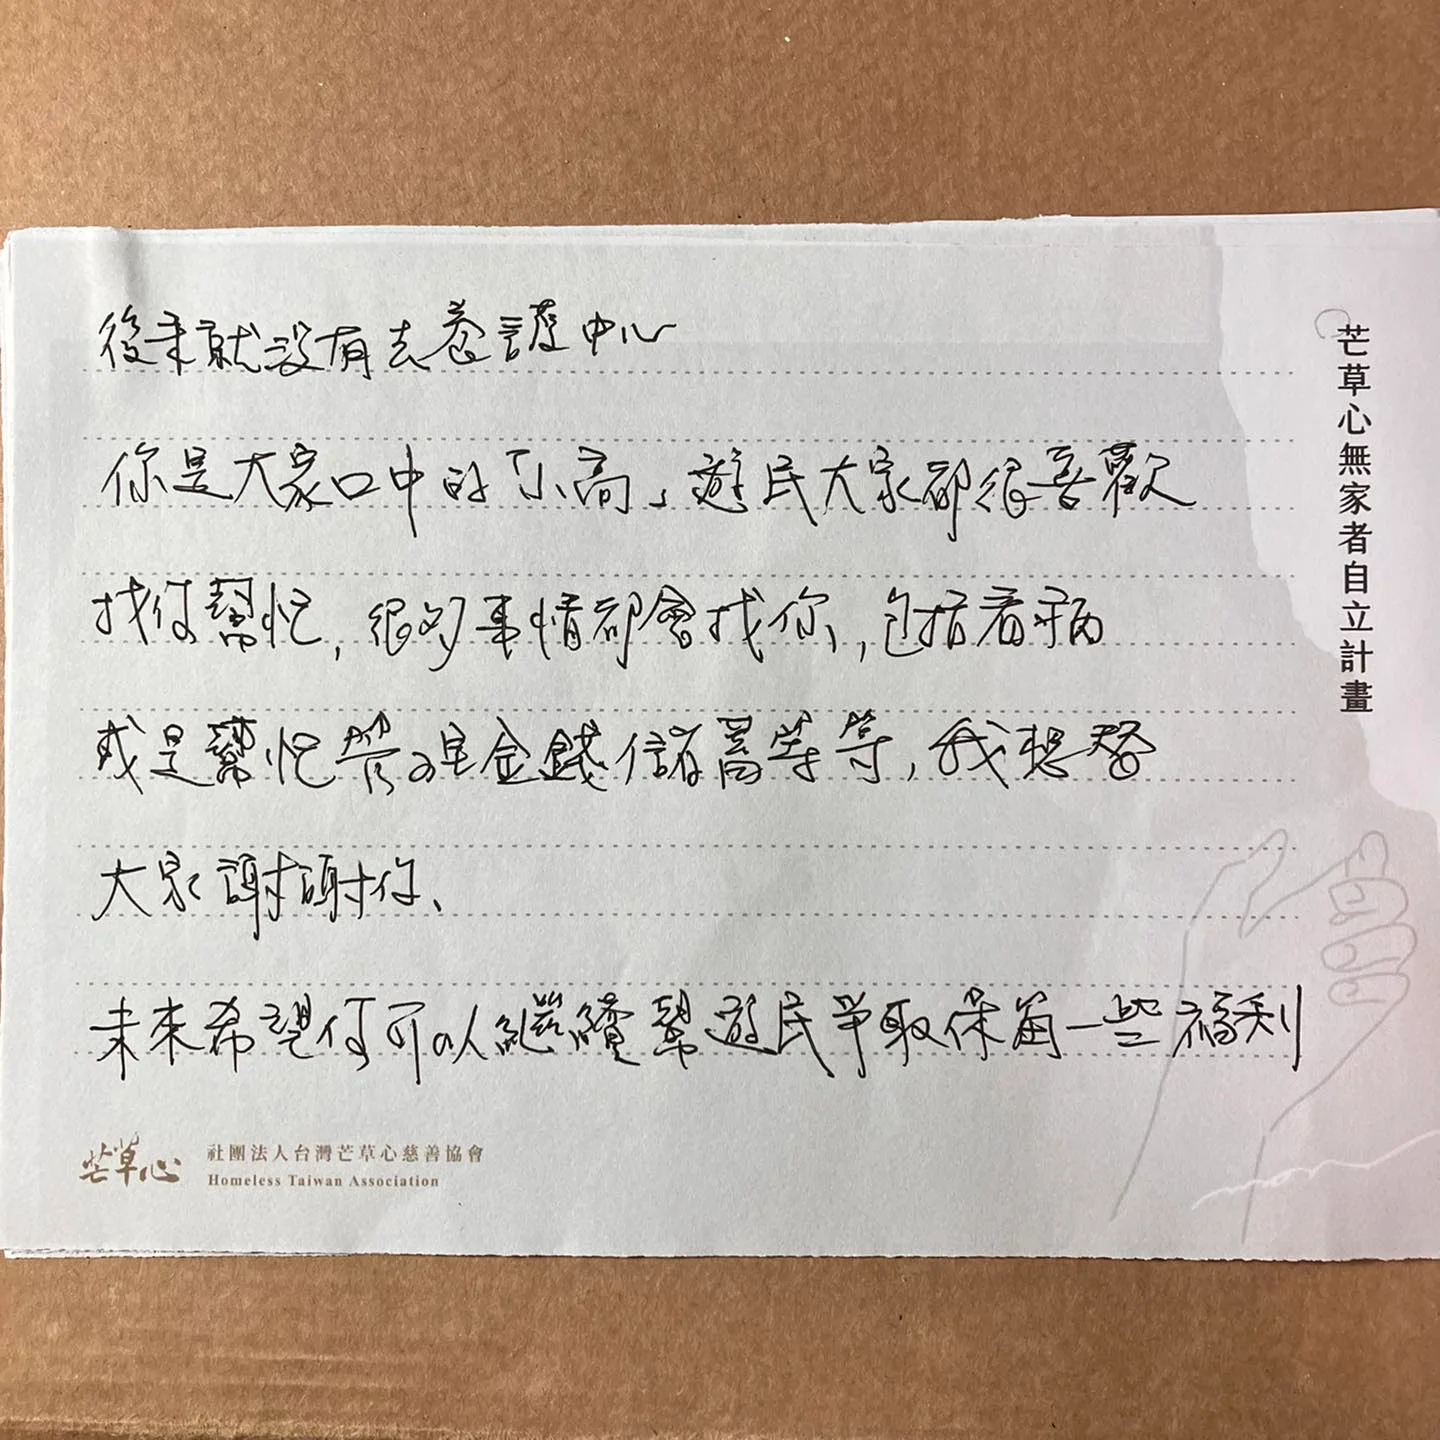 後來就沒有去養護中心
你是大家口中的「小高」遊民大家都很喜歡
找你幫忙，很多事情都會找你，包括看病
或是幫忙管理金錢儲蓄等等，我想替
大家謝謝你、
未來希望你可以繼續幫遊民爭取保留一些福利
芒草心無家者自立計畫
芒草心
社團法人台灣芒草心慈善協會
Homeless Taiwan Association